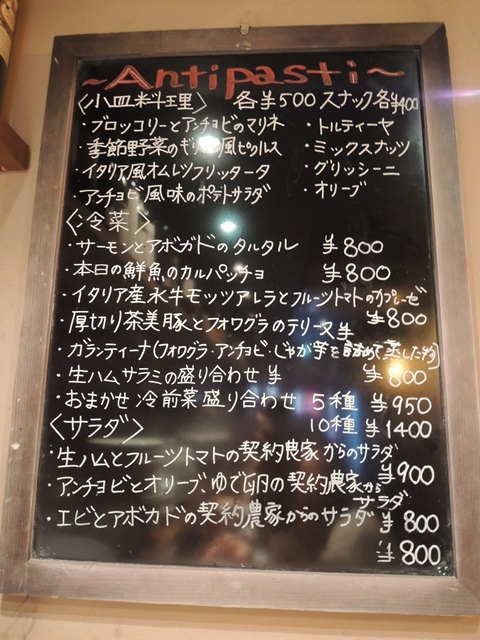 ~Antipasti~
〈小皿料理〉 各¥500 スナック各¥400
・ブロッコリーとアンチョビのマリネ ・トルティーヤ
・季節野菜のギリシャ風ピクルス ・ミックスナッツ
・イタリア風オムレツフリッタータ ・グリッシーニ
アンチョビ風味のポテトサラダ ・オリーブ
〈冷菜〉
・サーモンとアボガドのタルタル ¥800
・本日の鮮魚のカルパッチョ ¥800
・イタリア産水牛モッツアレラとフルーツトマトのカプレーゼ
・厚切り茶美豚とフォワグラのテリーヌ ¥ ¥800
・ガランティーナ(フォワグラ・アンチョビ・じゃが芋を 蒸した物)
・生ハムサラミの盛り合わせ ¥ ¥800
・おまかせ 冷前菜盛り合わせ 5種 ¥950
〈サラダ〉 10種 ¥1400
・生ハムとフルーツトマトの契約農家からのサラダ
¥900
・アンチョビとオリーブ、ゆで卵の契約農家からサラダ
・エビとアボカドの契約農家からのサラダ ¥800
¥800